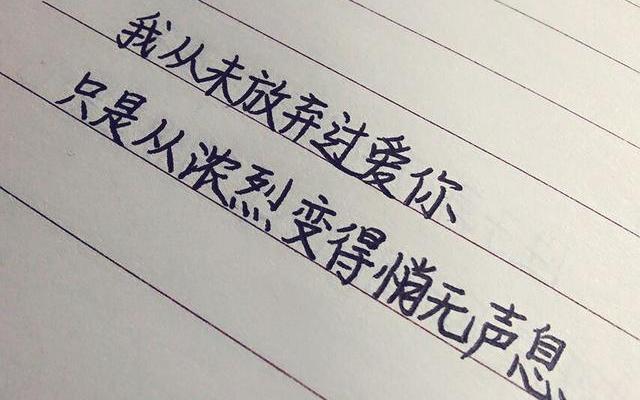 我从未放弃过爱你
只是从浓烈变得悄无声息